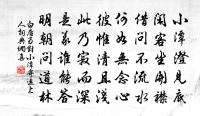 小潭澄見底
閑客坐開襟
借問不流水
何如無念心
彼惟清且淺
此乃寂而深
是義誰能答
明朝問道林
白居易對小潭寄遠上
人詞典網集